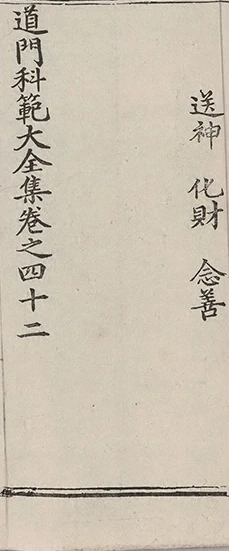 送神　化財　念善
道門科範大全集卷之四十二